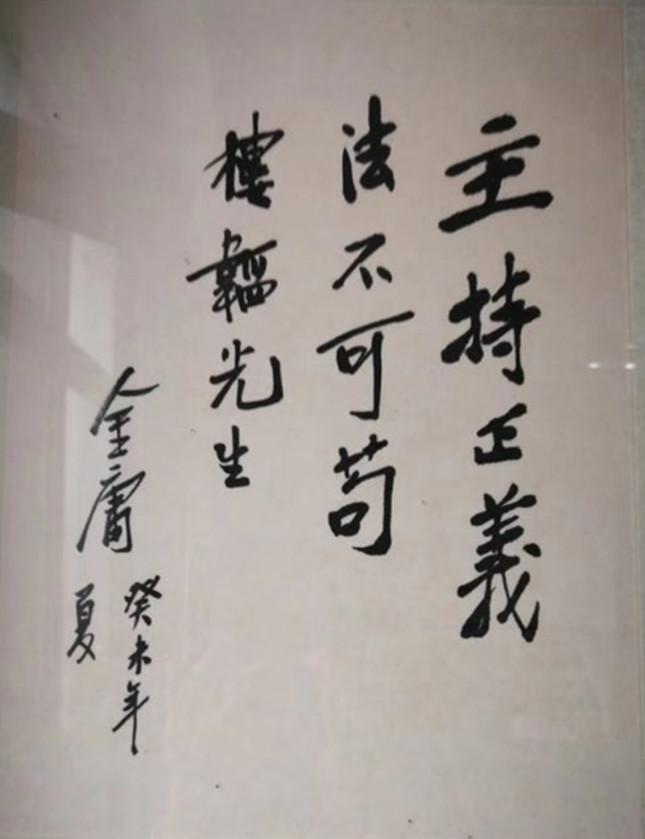 主持正義
法不可苟
樓韜先生
金庸
癸未年
夏